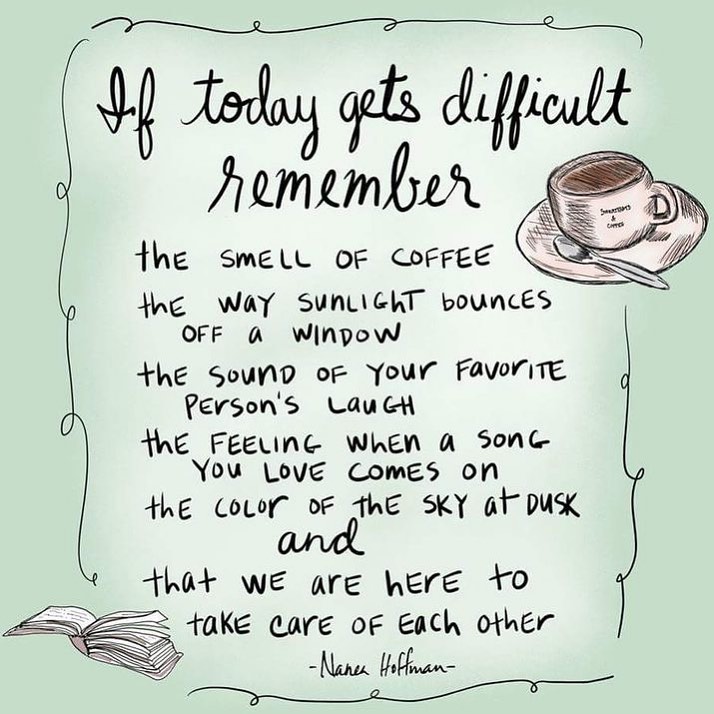 If today gets difficult
remember
the SMELL OF COFFEE
the way sunlight bounces
OFF a WINDOW
the SOUND OF your FavorITE
PERSON'S LauGH
the FEELING WhEN a SONG
YOU LOVE COMES ON
the COLOr OF the SKY at DUSK
and
that WE arE hErE to
takE carE OF Each othEr
-Nanea Hoffman-
SWEATPANTS
&
COFFEE